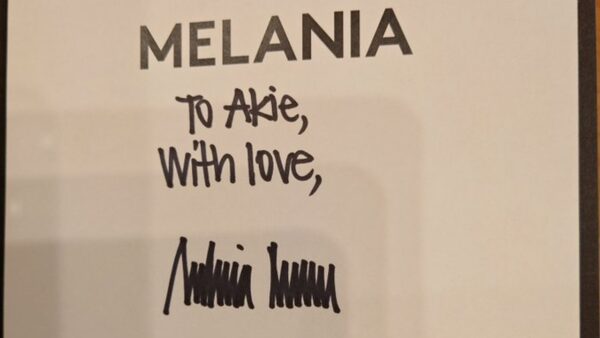 MELANIA
To Akie,
With love,